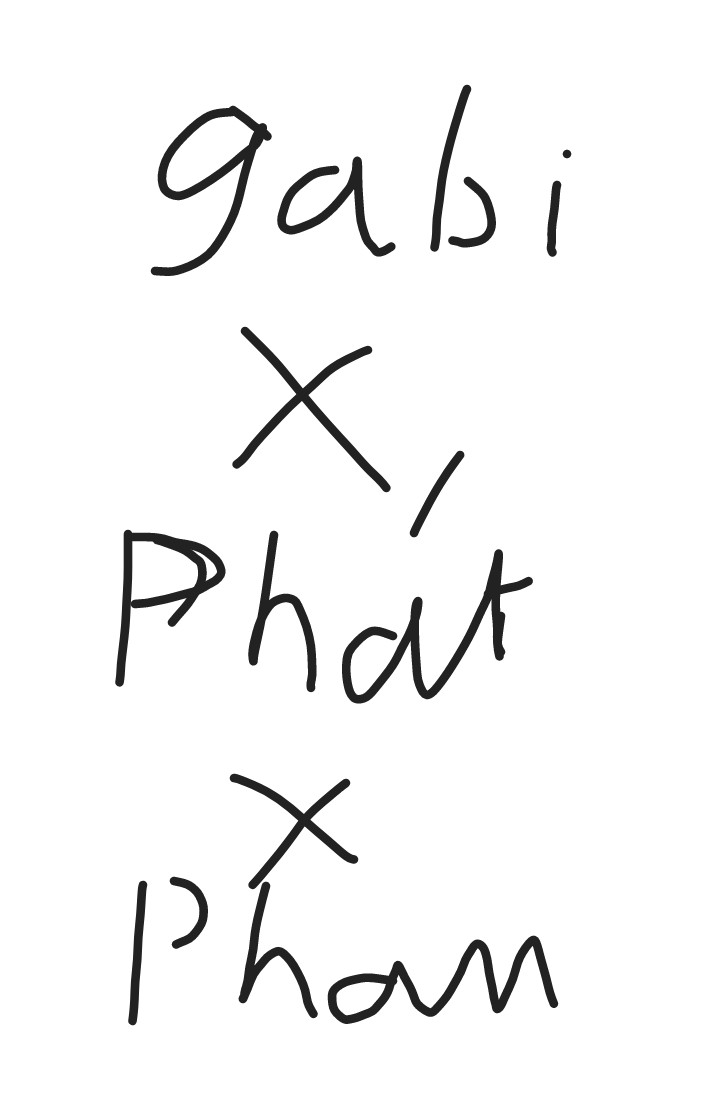 gabi
X
Phát
X
Phan